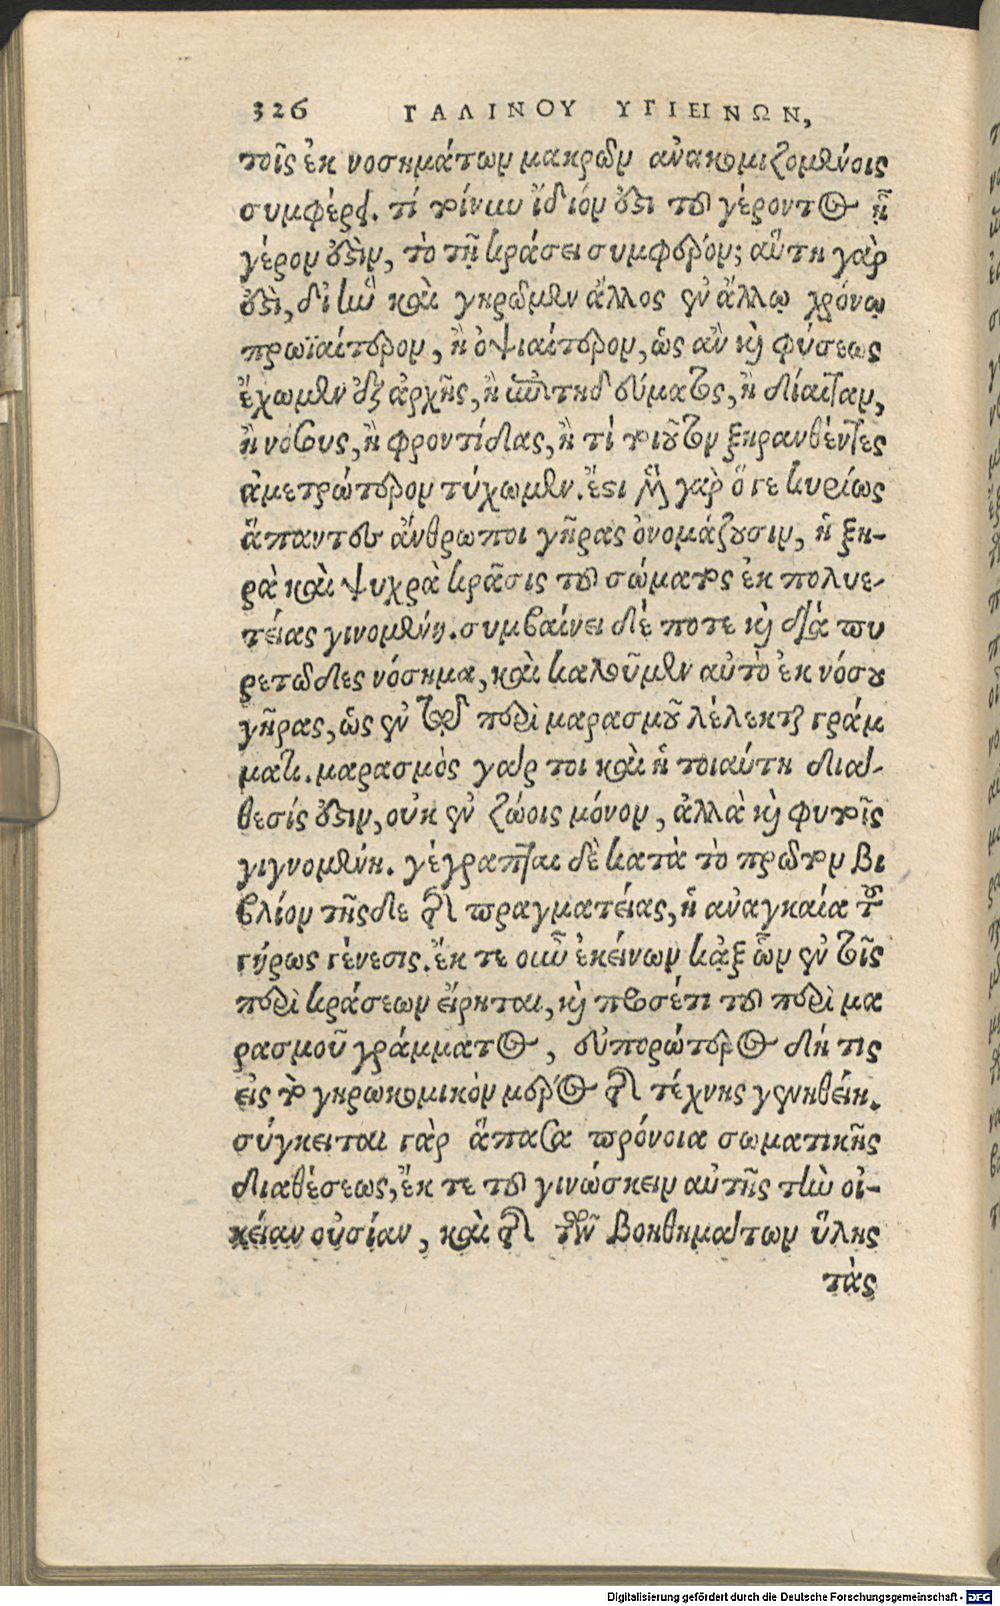 326 ΓΑΛΙΝΟΥ ΥΓΙΕΙΝΩΝ,
τοῖς ἐκ νοσημάτων μακρῶν ἀνακομιζομένοις
συμφέρει. τί τοίνυν ἴδιόν ἐστι τοῦ γέροντος ᾗ
γέρον ἐστὶν, τὸ τῇ κράσει συμφέρον; αὕτη γὰρ
ἐστὶ, δι' ἣν καὶ γηρῶμεν ἄλλος ἐν ἄλλῳ χρόνῳ
πρωϊαίτερον, ἢ ὀψιαίτερον, ὡς ἂν καὶ φύσεως
ἔχωμεν ἐξ ἀρχῆς, ἢ ἐπιτηδεύματος, ἢ δίαιταν,
ἢ νόσους, ἢ φροντίδας, ἢ τι τοιοῦτον ξηρανθέντες
ἀμετρώτερον τύχωμεν. ἔστι μὲν γὰρ ὅ γε κυρίως
ἅπαντες ἄνθρωποι γῆρας ὀνομάζουσιν, ἡ ξη-
ρὰ καὶ ψυχρὰ κρᾶσις τοῦ σώματος ἐκ πολυε-
τείας γινομένη. συμβαίνει δέ ποτε καὶ διὰ πυ
ρετῶδες νόσημα, καὶ καλοῦμεν αὐτὸ ἐκ νόσου
γῆρας, ὡς ἐν τῷ περὶ μαρασμοῦ λέλεκται γράμ
ματι. μαρασμὸς γάρ τοι καὶ ἡ τοιαύτη διά-
θεσίς ἐστιν, οὐκ ἐν ζώοις μόνον, ἀλλὰ καὶ φυτοῖς
γιγνομένη. γέγραπται δὲ κατὰ τὸ πρῶτον βι
βλίον τῆσδε τῆς πραγματείας, ἡ ἀναγκαία τοῦ
γήρως γένεσις. ἔκ τε οὖν ἐκείνων κἀξ ὧν ἐν τοῖς
περὶ κράσεων εἴρηται, καὶ προσέτι τοῦ περὶ μα
ρασμοῦ γράμματος, εὐπορώτερος δή τις
εἰς τὸ γηρωκομικὸν μέρος τῆς τέχνης γενηθείη.
σύγκειται γὰρ ἅπασα πρόνοια σωματικῆς
διαθέσεως, ἔκ τε τοῦ γινώσκειν αὐτῆς τὴν οἰ-
κείαν οὐσίαν, καὶ τῆς τῶν βοηθημάτων ὕλης
τὰς
Digitalisierung gefördert durch die Deutsche Forschungsgemeinschaft - DFG